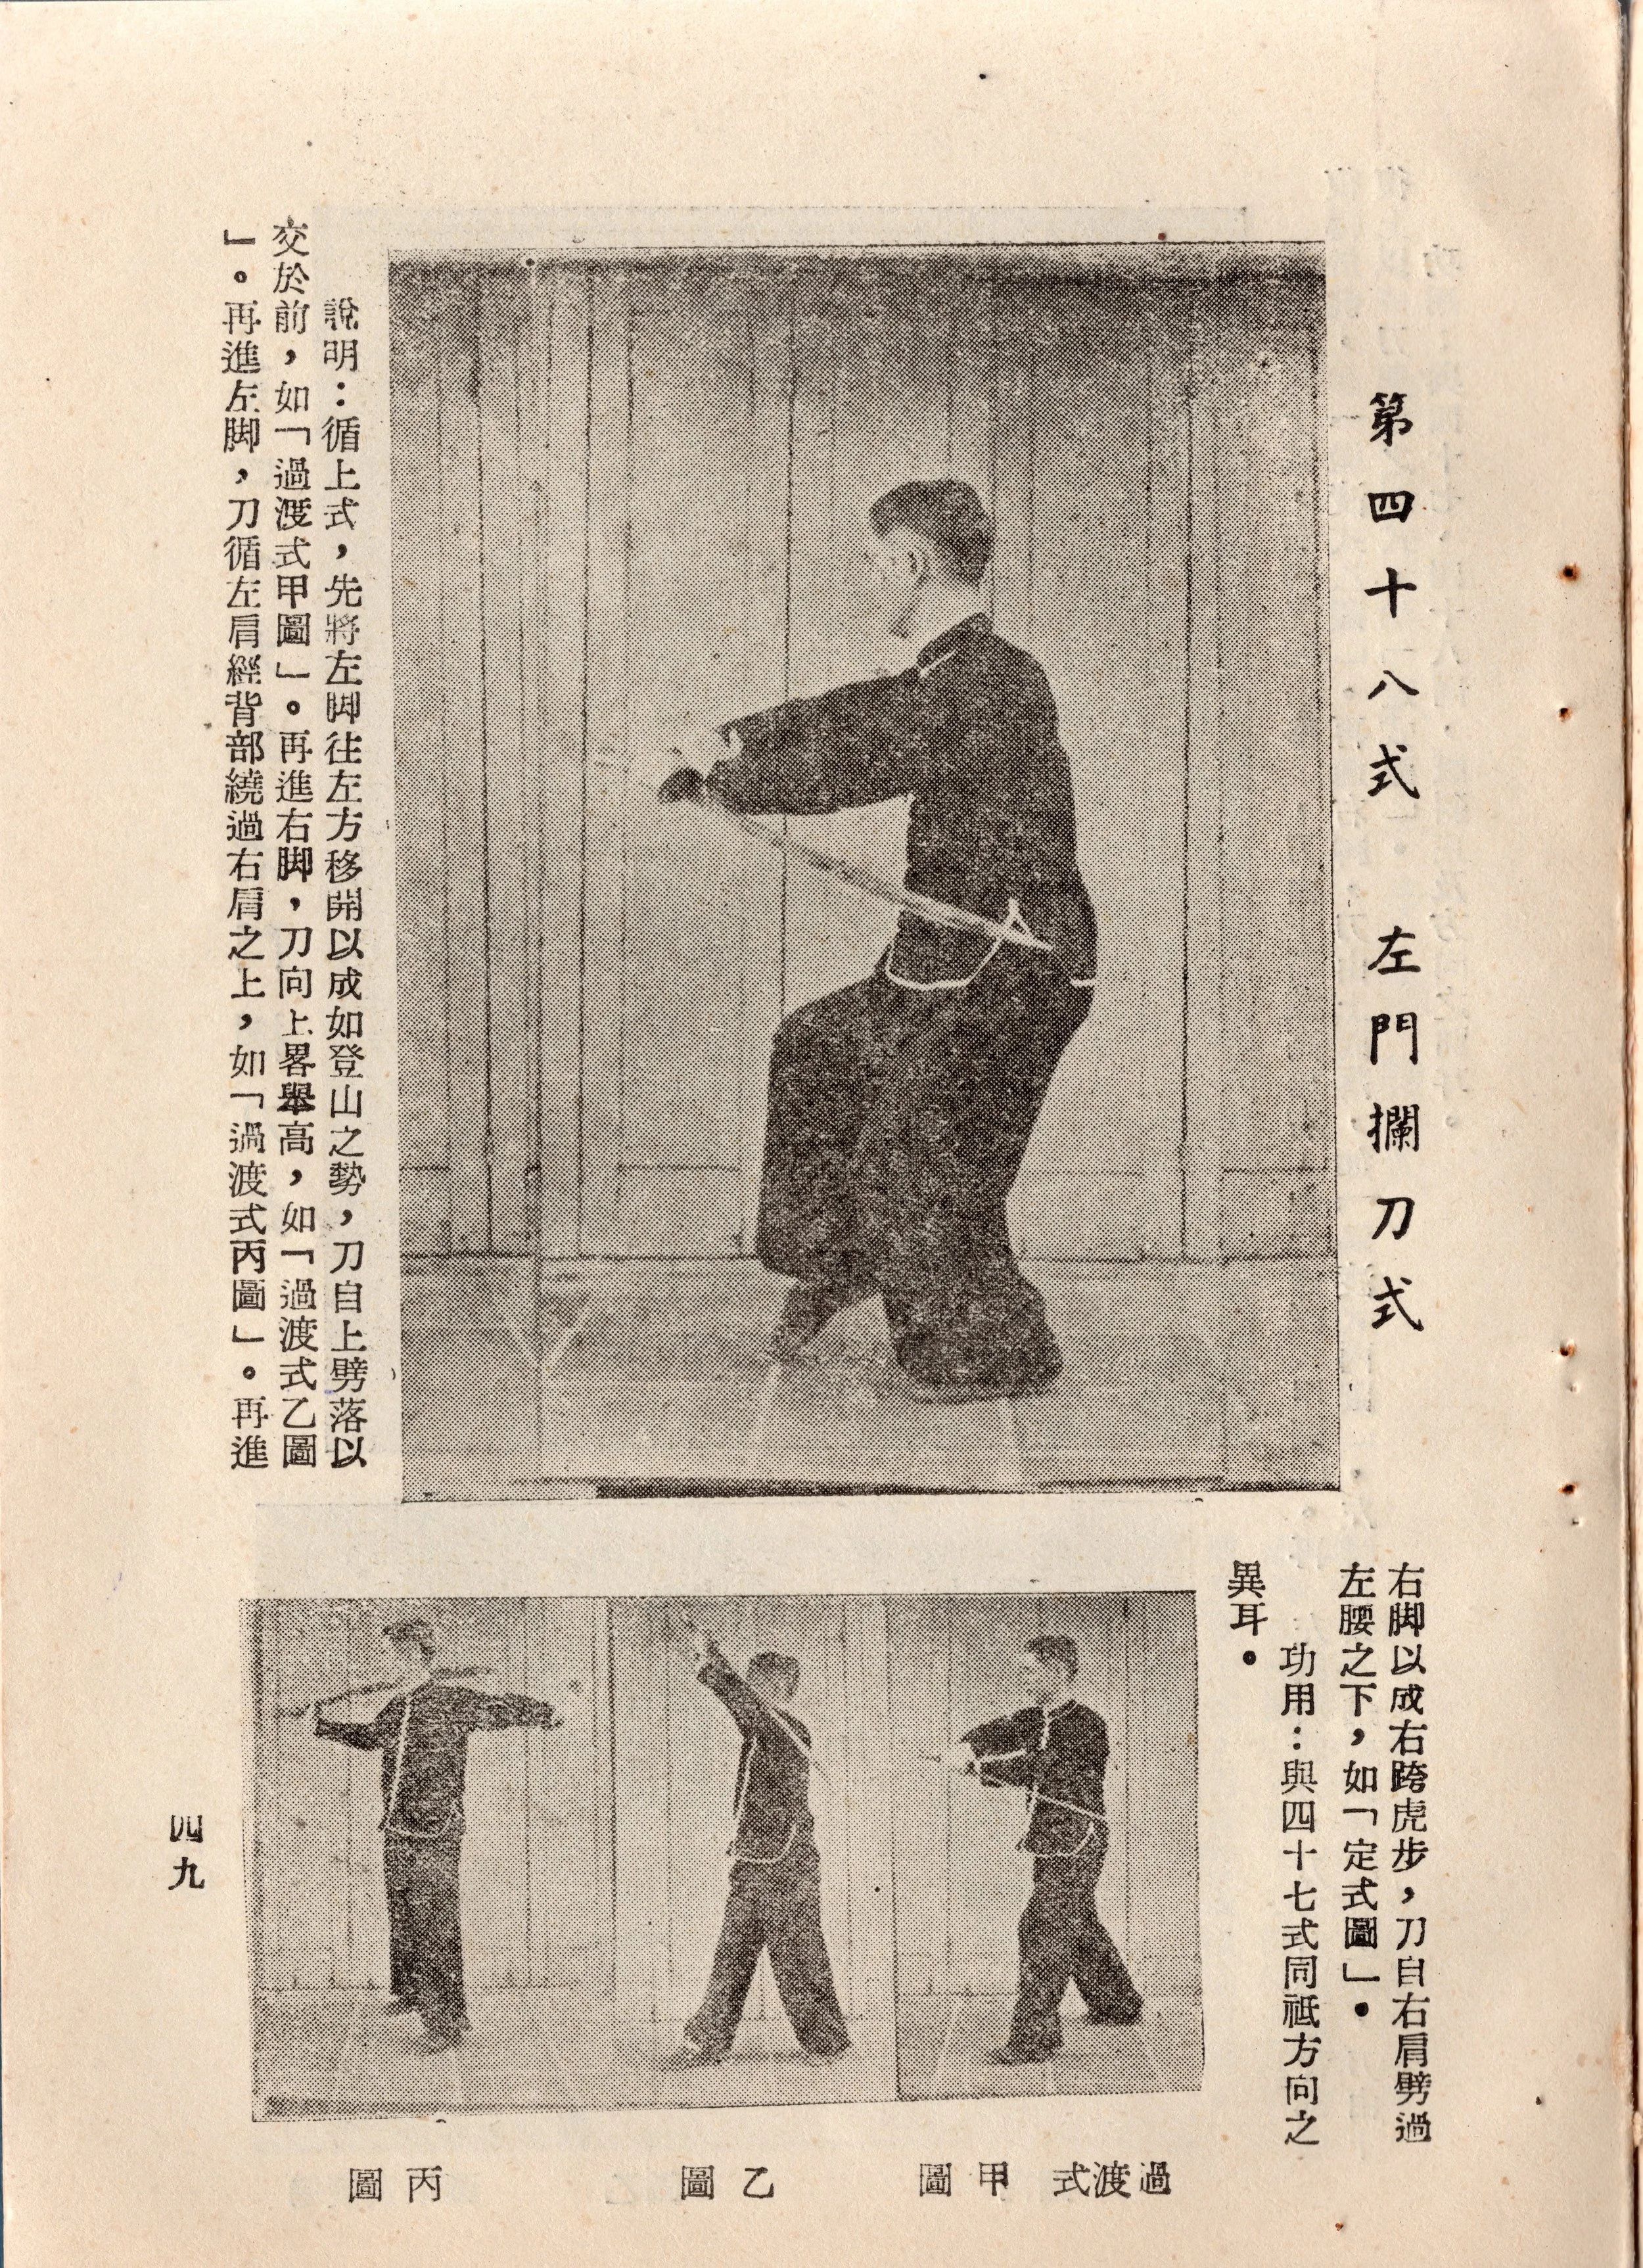 第四十八式 左門攔刀式
說明：循上式，先將左脚往左方移開以成如登山之勢，刀自上劈落以
交於前，如「過渡式甲圖」。再進右脚，刀向上畧舉高，如「過渡式乙圖
」。再進左脚，刀循左肩經背部繞過右肩之上，如「過渡式丙圖」。再進
右脚以成右跨虎步，刀自右肩劈過
左腰之下，如「定式圖」。
功用：與四十七式同祗方向之
異耳。
過渡式 甲圖
乙圖
丙圖
四九